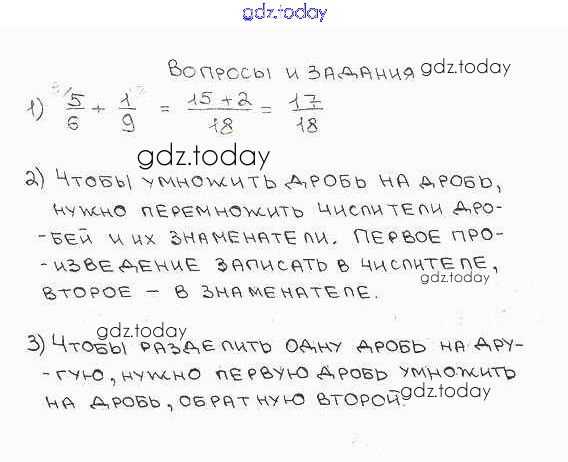 gdz.today
Вопросы и задания gdz.today
1) 5/6 + 1/9 = (15+2)/18 = 17/18
gdz.today
2) Чтобы умножить дробь на дробь,
нужно перемножить числители дро-
-бей и их знаменатели. Первое про-
-изведение записать в числителе,
gdz.today
второе – в знаменателе.
gdz.today
3) Чтобы разделить одну дробь на дру-
-гую, нужно первую дробь умножить
gdz.today
на дробь, обратную второй.